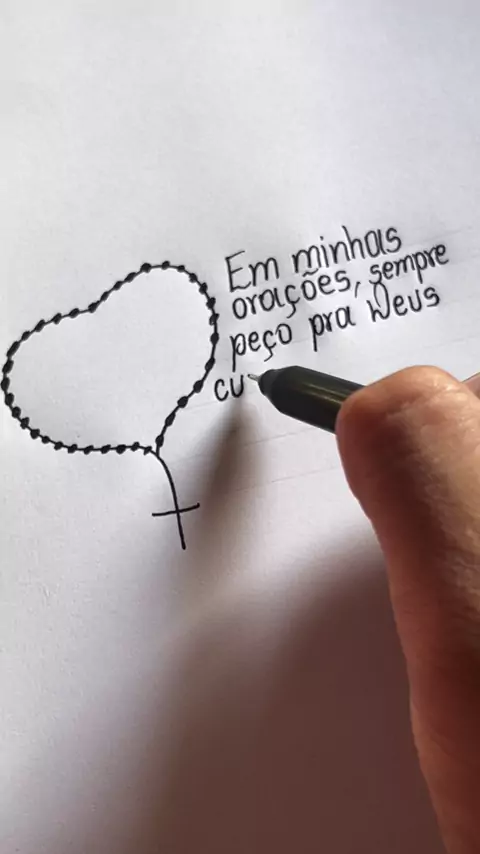 Em minhas
orações, sempre
peço pra Deus
cu